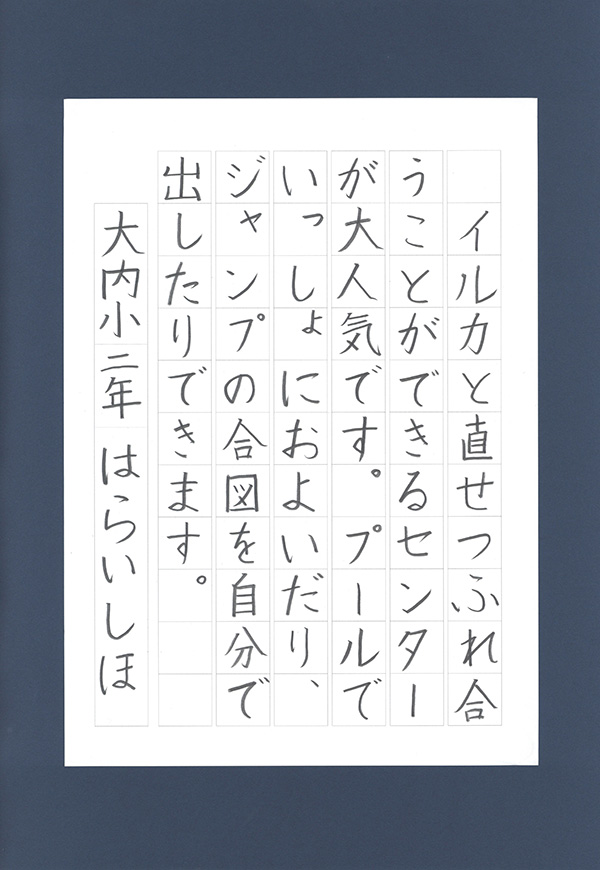 イルカと直せつふれ合
うことができるセンター
が大人気です。プールで
いっしょにおよいだり、
ジャンプの合図を自分で
出したりできます。
大内小二年 はらいしほ